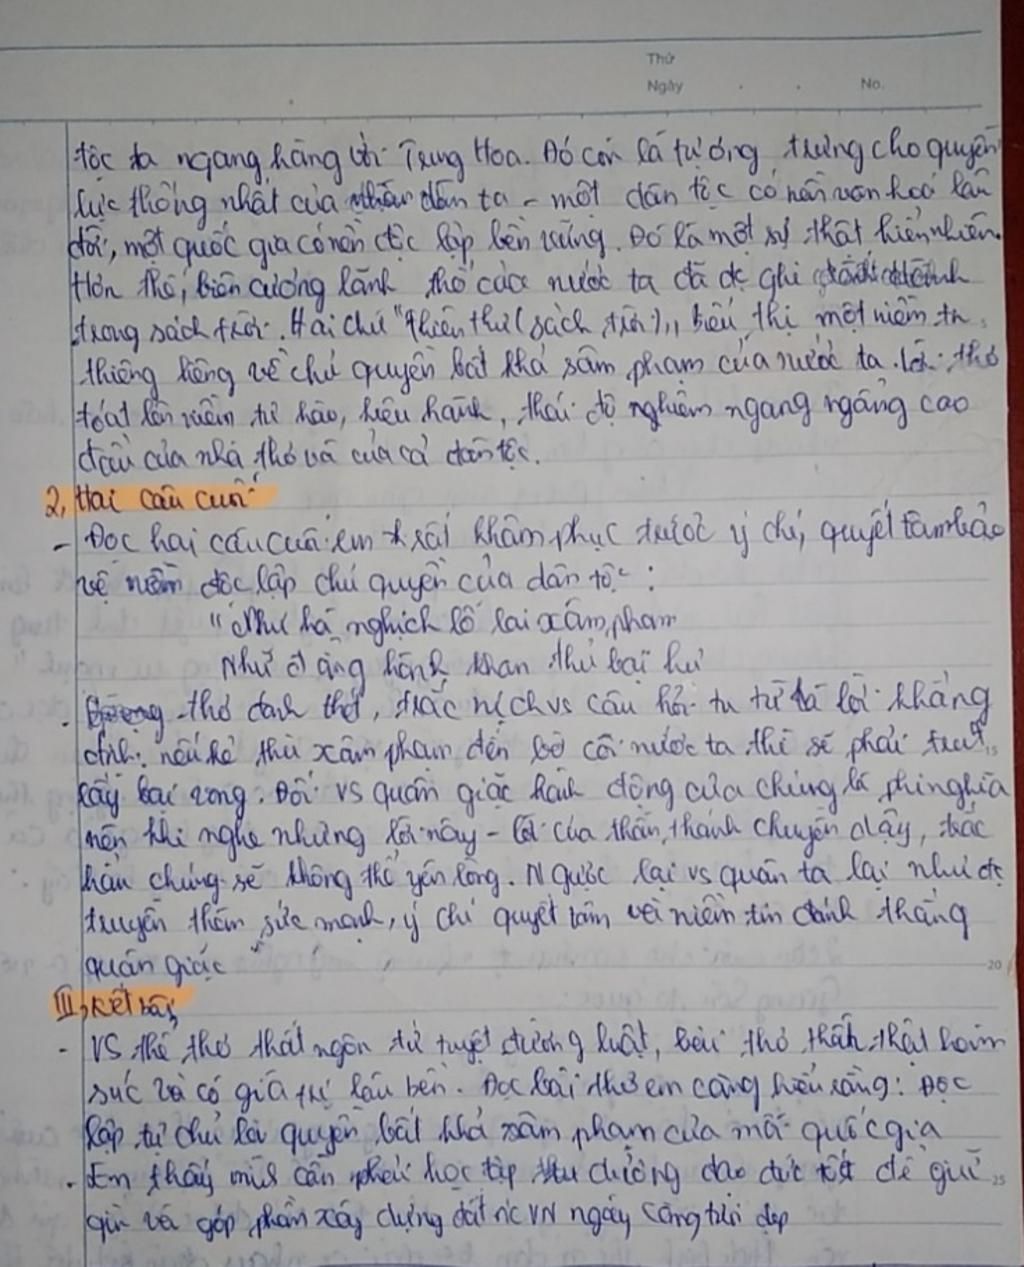 Thứ
Ngày . . No.
tộc ta ngang hàng với Trung Hoa. Đó còn là tượng trưng cho quyền
lực thống nhất của nhân dân ta - một dân tộc có nền văn hoá lâu
đời, một quốc gia có nền độc lập bền vững. Đó là một sự thật hiển nhiên.
Hơn thế, biên cương lãnh thổ của nước ta đã đc ghi
trong sách trời. Hai chữ "thiên thư (sách trời)" biểu thị một niềm tin
thiêng liêng về chủ quyền bất khả xâm phạm của nước ta. Lời thơ
toát lên niềm tự hào, kiêu hãnh, thái độ nghiêm ngang ngẩng cao
đầu của nhà thơ và của cả dân tộc.
2, Hai câu cuối
- Đọc hai câu cuối em rất khâm phục trước ý chí, quyết tâm bảo
vệ nền độc lập chủ quyền của dân tộc:
"Như hà nghịch lỗ lai xâm phạm
Nhữ đẳng hành khan thủ bại hư
- Giọng thơ đanh thép, chắc nịch vs câu hỏi tu từ là lời khẳng
định. nếu kẻ thù xâm phạm đến bờ cõi nước ta thì sẽ phải trút 15
lấy bại vong. Đối vs quân giặc hành động của chúng là phi nghĩa
nên khi nghe những lời này - lời của thần thánh chuyền dậy, chắc
hẳn chúng sẽ không thể yên lòng. Ngược lại vs quân ta lại như đc
truyền thêm sức mạnh, ý chí quyết tâm và niềm tin đánh thắng
quân giặc 20
III, Kết bài
- VS thể thơ thất ngôn tứ tuyệt đường luật, bài thơ thần thật hàm
súc và có giá trị lâu bền. Đọc bài thơ em càng hiểu rằng: Độc
lập tự chủ là quyền bất khả xâm phạm của mỗi quốc gia
- Em thấy mik cần phải học tập tu dưỡng đạo đức tốt để giữ 25
gìn và góp phần xây dựng đất nc VN ngày càng tươi đẹp